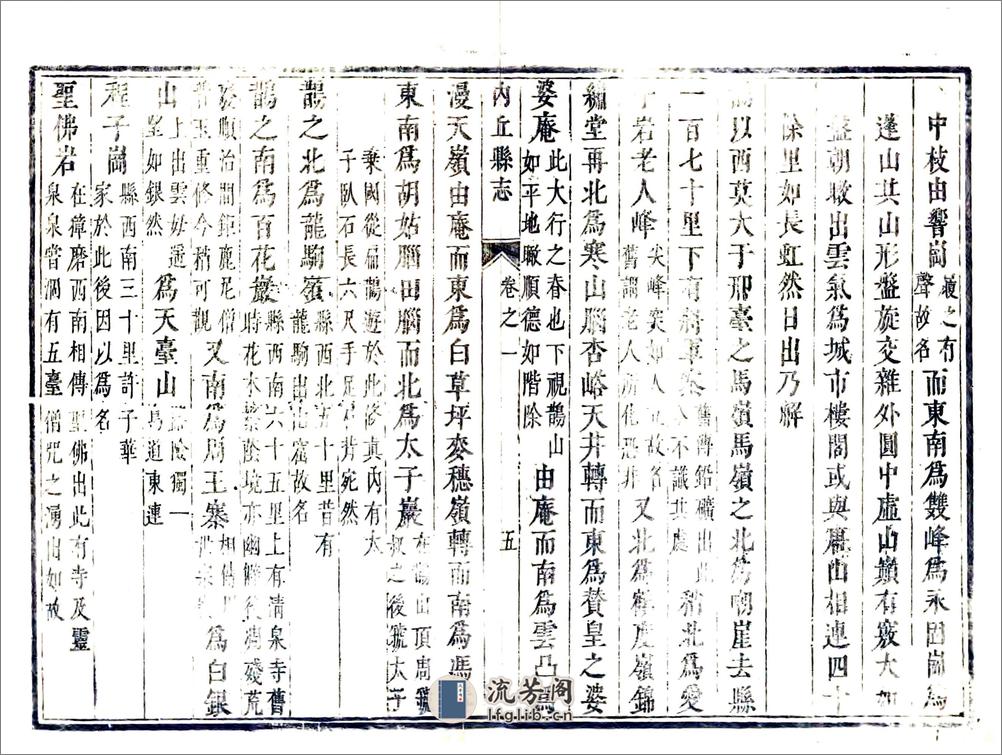 中枝由響崗嶺之有聲故名而東南爲雙峰爲永固崗爲
蓬山其山形盤旋交雜外圓中虛山巔有竅大如
盆朝暾出雲氣爲城市樓閣或與鵲山相連四十
餘里如長虹然日出乃解
以西莫大于邢臺之馬嶺馬嶺之北爲嘲崖去縣
一百七十里下有將軍寨舊傳鉛礦出此人不識其處稍北爲愛
子岩老人峰尖峰突如人立故名舊謂老人所化恐非又北爲鶴度嶺錦
繡堂再北爲寒山腦杏峪天井轉而東爲贊皇之婆
婆庵此大行之脊也下視鵲山如平地瞰順德如階除由庵而南爲雲凸爲
內丘縣志 卷之一 五
漫天嶺由庵而東爲白草坪麥穗嶺轉而南爲馮
東南爲胡姑腦田腦而北爲太子巖在鵲山頂周虢叔之後虢太子
乘國從扁鵲遊於此修真內有太子臥石長六尺手足背宛然
鵲之北爲龍駒嶺縣西北五十里昔有龍駒出此窩故名
鵲之南爲百花巖縣西南六十五里上有清泉寺舊時花木蔭境亦幽勝後凋殘荒
廢順治間鉅鹿尼僧普玉重修今稍可觀又南爲周王寨相傳爲白銀
山上出雲母遙望如銀然爲天臺山獨一爲道東連
程子崗縣西南三十里許子華家於此後因以爲名
聖佛岩在漳磨西南相傳聖佛出此有寺及靈泉泉嘗涸有五臺僧咒之湧出如故
流芳閣
lfglib.cn